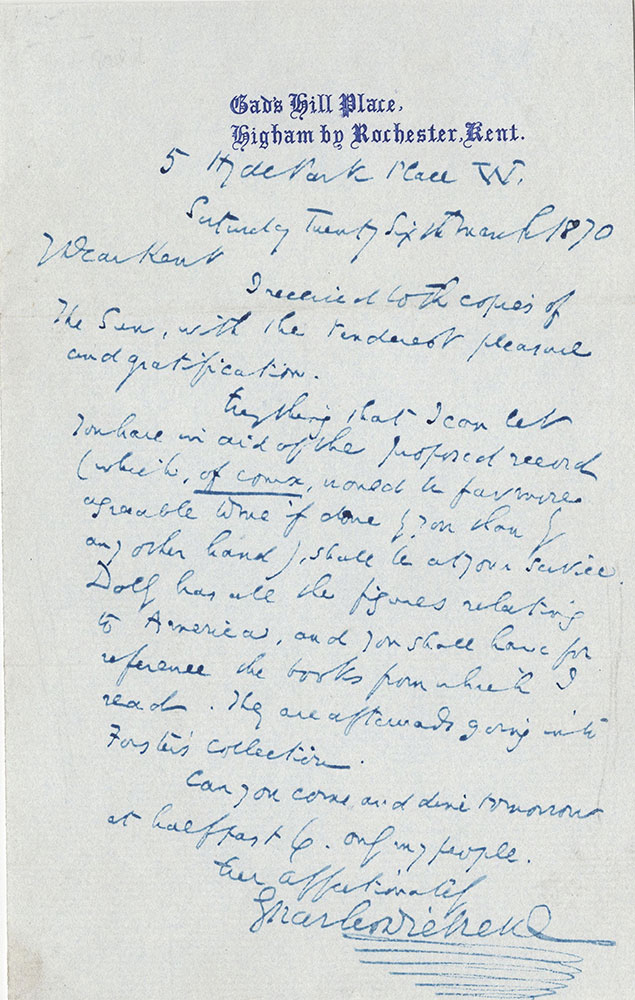 Gad's Hill Place,
Higham by Rochester, Kent.
5 Hyde Park Place W.
Saturday Twenty Sixth March 1870
My Dear Kent
I received both copies of
The Sun, with the tenderest pleasure
and gratification.
Everything that I can let
you have in aid of the proposed record
(which, of course, would be far more
agreeable to me if done by you than by
any other hand), shall be at your service.
Dolby has all the figures relating
to America, and you shall have for
reference the books from which I
read. They are afterwards going into
Forster's collection.
Can you come and dine tomorrow
at half past 6. only my people.
Ever affectionately
Charles Dickens